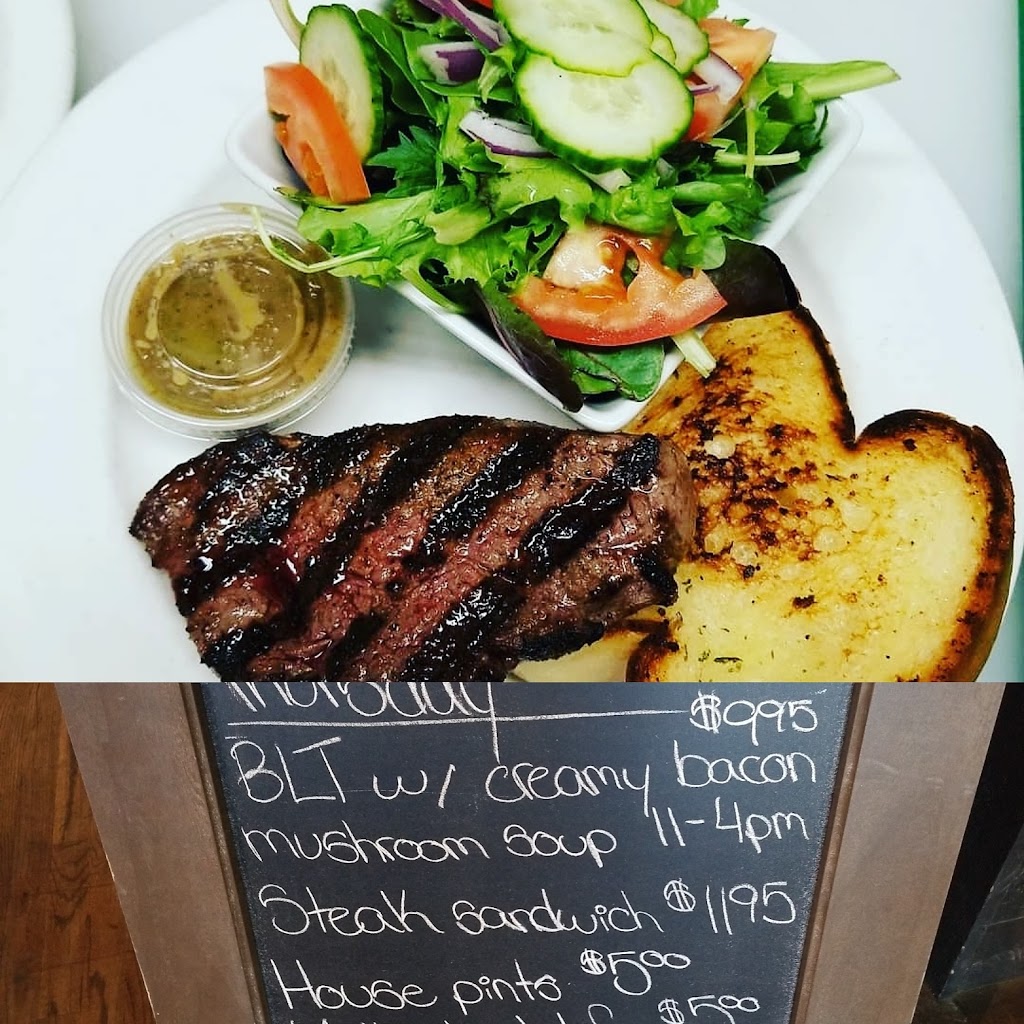 Thursday
$9.95
BLT w/ creamy bacon
mushroom soup 11-4pm
Steak sandwich $11.95
House pints $5.00
$5.00